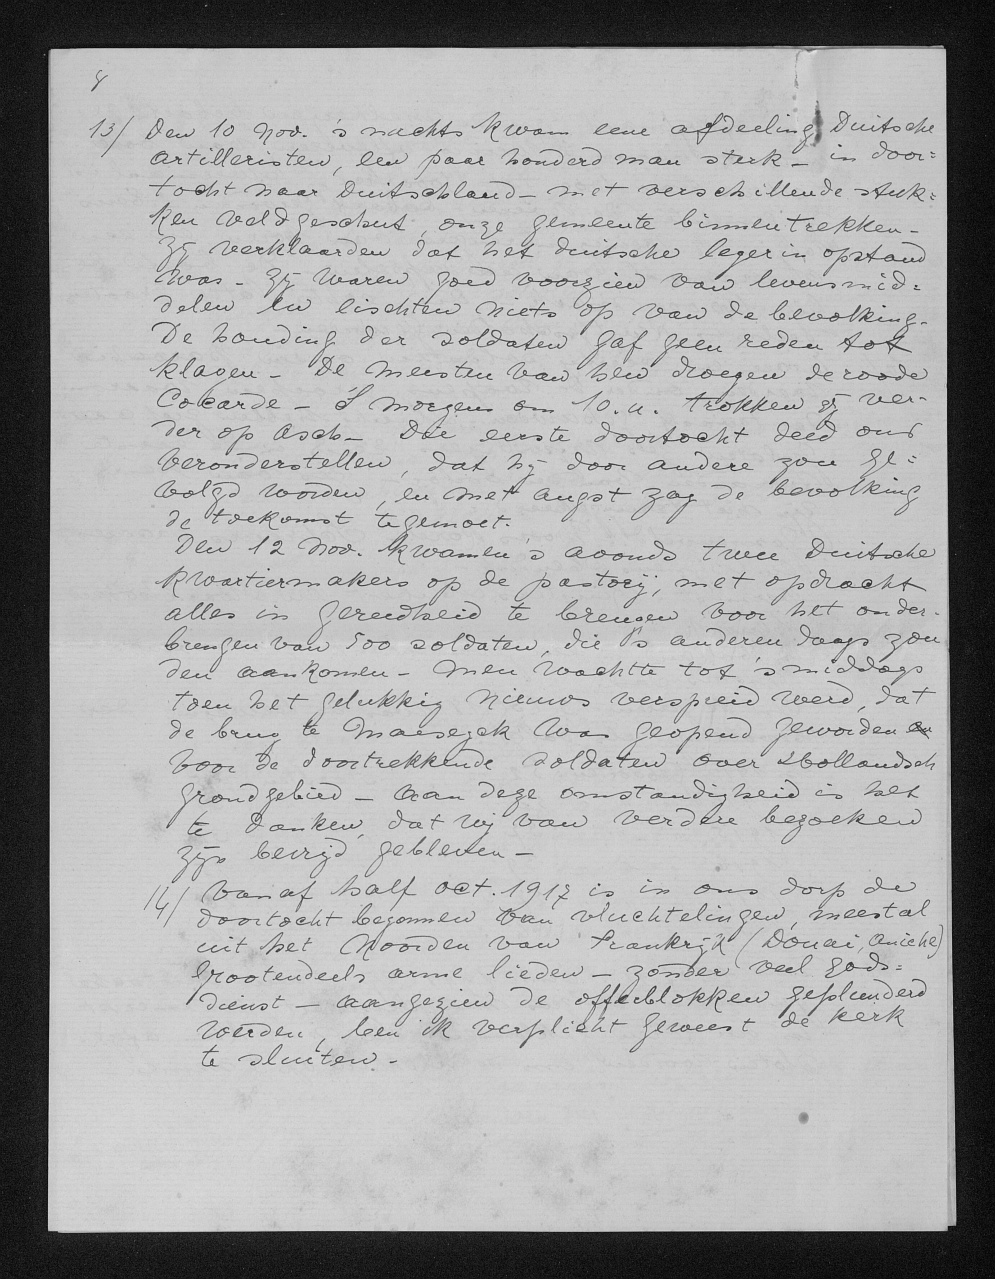 8
13/ Den 10 Nov. 's nachts kwam eene afdeeling Duitsche
artilleristen, een paar honderd man sterk – in door=
tocht naar Duitschland – met verschillende stuk=
ken veldgeschut, onze gemeente binnentrekken –
Zij verklaarden dat het duitsche leger in opstand
was – Zij waren goed voorzien van levensmid=
delen en lischten niets op van de bevolking.
De houding der soldaten gaf geen reden tot
klagen – De meesten van hen droegen de roode
Cocarde – 's morgens om 10.u. trokken zij ver-
der op Asch – Die eerste doortocht deed ons
veronderstellen, dat hij door andere zou ge=
volgd worden, en met angst zag de bevolking
de toekomst tegemoet.
Den 12 Nov. kwamen 's avonds twee Duitsche
kwartiermakers op de pastorij, met opdracht
alles in gereedheid te brengen voor het onder-
brengen van 500 soldaten, die 's anderen daags zou
den aankomen – Men wachtte tot 's middags
toen het gelukkig nieuws verspreid werd, dat
de brug te Maeseyck was geopend geworden
voor de doortrekkende soldaten over Hollandsch
grondgebied – Aan deze omstandigheid is het
te danken, dat wij van verdere bezoeken
zijn bevrijd gebleven –
14/ Vanaf half oct. 1917 is in ons dorp de
doortocht begonnen van vluchtelingen, meestal
uit het Noorden van Frankrijk (Douai, Aniche)
grootendeels arme lieden – zonder veel gods=
dienst – aangezien de offerblokken geplunderd
werden, ben ik verplicht geweest de kerk
te sluiten. –